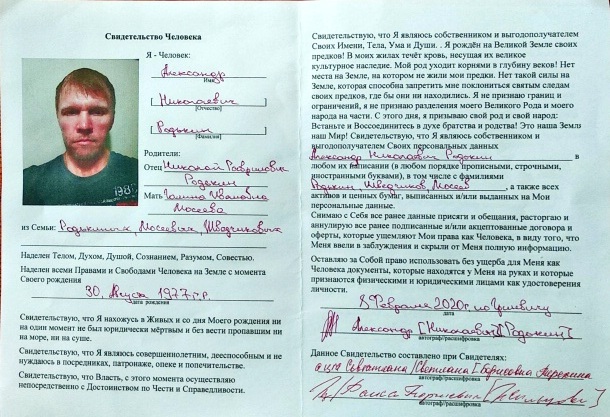 Свидетельство Человека
Я - Человек:
Александр
Имя
Николаевич
[Отчество]
Родькин
[Фамилия]
Родители:
Отец Николай
Родькин
Мать Галина Ивановна
Мосеева
из Семьи:
Наделен Телом, Духом, Душой, Сознанием, Разумом, Совестью.
Наделен всеми Правами и Свободами Человека на Земле с момента
Своего рождения
30 Августа 1977 г.р.
дата рождения
Свидетельствую, что Я нахожусь в Живых и со дня Моего рождения ни
на один момент не был юридически мёртвым и без вести пропавшим ни
на море, ни на суше.
Свидетельствую, что Я являюсь совершеннолетним, дееспособным и не
нуждаюсь в посредниках, патронаже, опеке и попечительстве.
Свидетельствую, что Власть, с этого момента осуществляю
непосредственно с Достоинством по Чести и Справедливости.
Свидетельствую, что Я являюсь собственником и выгодополучателем
Своих Имени, Тела, Ума и Души. . Я рождён на Великой Земле своих
предков! В моих жилах течёт кровь, несущая их великое
культурное наследие. Мой род уходит корнями в глубину веков! Нет
места на Земле, на котором не жили мои предки. Нет такой силы на
Земле, которая способна запретить мне поклониться святым следам
своих предков, где бы они ни находились. Я не признаю границ и
ограничений, я не признаю разделения моего Великого Рода и моего
народа на части. С этого дня, я призываю свой род и свой народ:
Встаньте и Воссоединитесь в духе братства и родства! Это наша Земля
наш Мир! Свидетельствую, что Я являюсь собственником и
выгодополучателем Своих персональных данных
Александр Николаевич Родькин в
любом их написании (в любом порядке прописными, строчными,
иностранными буквами), в том числе с фамилиями
Родькин, Шведчиков, Мосеев, а также всех
активов и ценных бумаг, выписанных и/или выданных на Мои
персональные данные.
Снимаю с Себя все ранее данные присяги и обещания, расторгаю и
аннулирую все ранее подписанные и/или акцептованные договора и
оферты, которые ущемляют Мои права как Человека, в виду того, что
Меня ввели в заблуждения и скрыли от Меня полную информацию.
Оставляю за Собой право использовать без ущерба для Меня как
Человека документы, которые находятся у Меня на руках и которые
признаются физическими и юридическими лицами как удостоверения
личности.
8 Февраля 2020г. по Григ
дата
Александр [Николаевич] [Родькин]
автограф/расшифровка
Данное Свидетельство составлено при Свидетелях:
Светлана [Борисовна
автограф/расшифровка
автограф/расшифровка